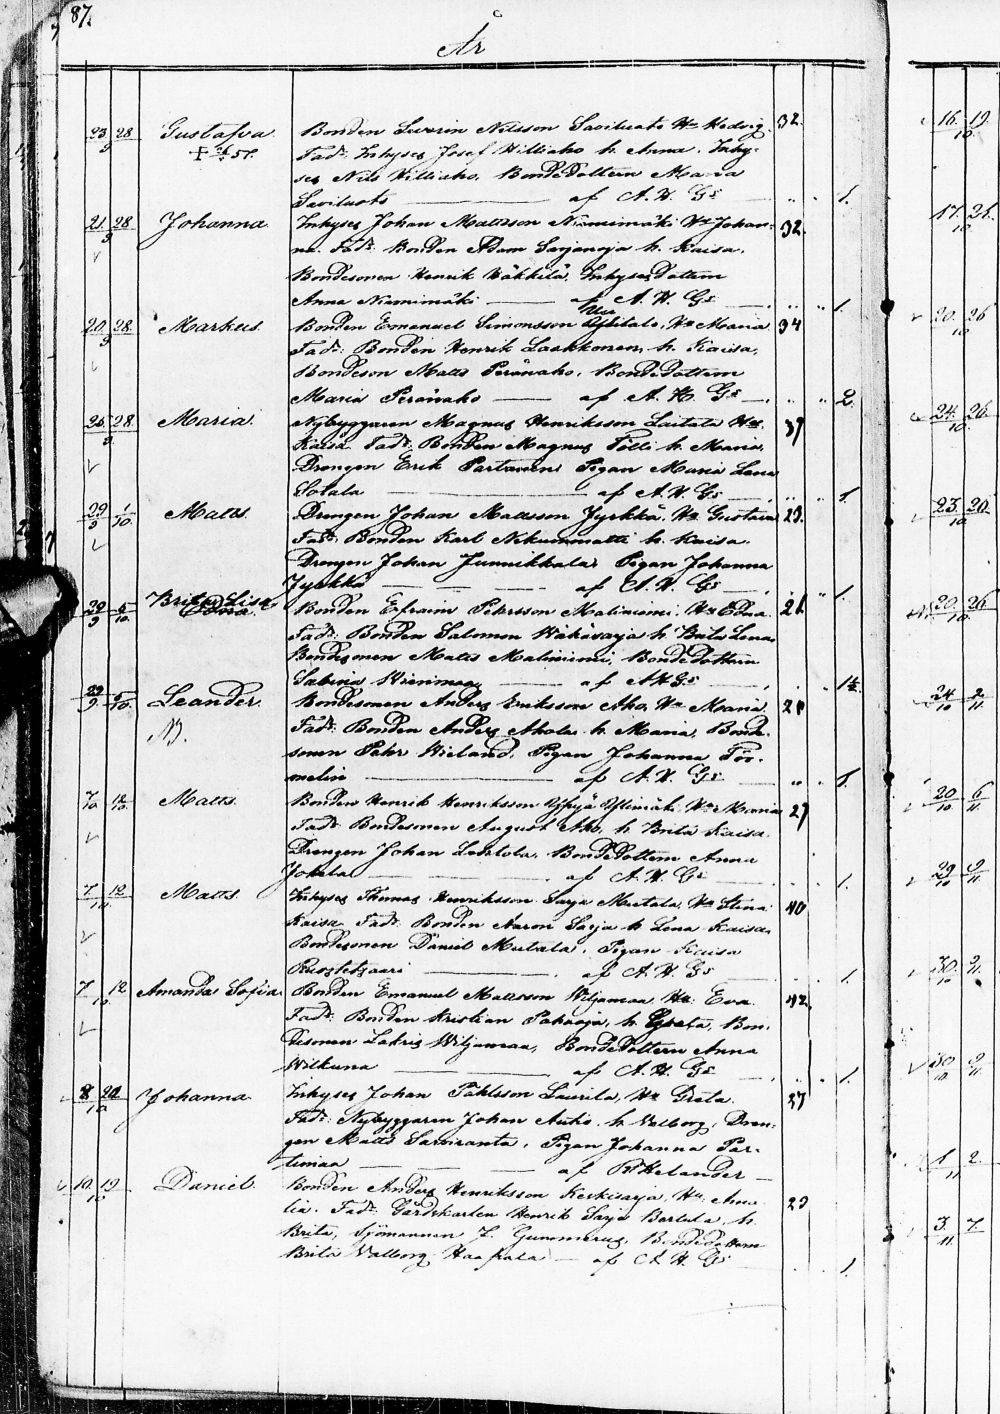 87.
År
23/9 28 Gustafva Bonden Severin Nilsson Saviluoto Hu Hedvig. 32.
Fadr: Inhyses Josef Williaho h. Anna. Inhy-
ses Nils Williaho, Bondedottern Maria
Saviluoto af A. H. Gs 1.
21/9 28 Johanna Inhyses Johan Mattsson Niemimäki Hu Johan- 32.
na. Fadr: Bonden Adam Sarjanoja h. Kaisa.
Bondesonen Henrik Häkkilä, Inhysesdottern
Anna Niemimäki af A. H. Gs 1.
20/9 28 Markus. Bonden Emanuel Simonsson Ylitalo, Hu Maria 34
Fadr: Bonden Henrik Laakkonen, h. Kaisa.
Bondeson Matts Peränaho, Bondedottern
Maria Peränaho af A. H. Gs 2.
25/9 28 Maria. Nybyggaren Magnus Henriksson Laitala Hu 37
Kaisa Fadr: Bonden Magnus Tölli h. Maria.
Drengen Erik Partanen Pigan Maria Lena
Sotala af A. H. Gs 1.
29/9 1/10 Matts. Drengen Johan Mattsson Jyrkkä, Hu Gustava 23.
Fadr: Bonden Karl Nikunmatti h. Kaisa.
Drengen Johan Junnikkala Pigan Johanna
Jyrkkä af A. H. Gs 1.
29/9 5/10 Brita Lisa Bonden Efraim Pehrsson Maliniemi, Hu Edna 26.
Fadr: Bonden Salomon Wäkäsarja h. Brita Lena
Bondesonen Matts Maliniemi, Bondedottern
Sabina Hienmaa af A. H. Gs
29/9 5/10 Leander. Bondesonen Anders Eriksson Aho, Hu Maria
Fadr: Bonden Anders Ahola h. Maria, Bonde-
sonen Pehr Wieland, Pigan Johanna Tör-
melin af A. H. Gs 1.
7/10 12/10 Matts. Bonden Henrik Henriksson Ylimäki Hu Maria 27
Fadr: Bondesonen August Aho, h. Brita Kaisa
Drengen Johan Lehtola, Bondedottern Anna
Jokela af A. H. Gs 1.
7/10 12 Matts. Inhyses Thomas Henriksson Sarja Mutala, Hu Stina 40
Kaisa Fadr: Bonden Aaron Sarja h. Lena Kaisa
Bondesonen Daniel Mutala, Pigan Kaisa
af A. H. Gs 1.
7/10 12 Amanda Sofia Bonden Emanuel Mattsson Wiljamaa, Hu: Eva 42
Fadr: Bonden Kristian Pahaoja, h. Greta, Bon-
desonen Zakris Wiljamaa, Bondedottern Anna
Wilkuna af A. H. Gs 1.
8/10 20 Johanna Inhyses Johan Påhlsson Laurila, Hu Greta 27
Fadr: Nybyggaren Johan Autio h. Walborg, Dren-
gen Matts Sarviranta, Pigan Johanna Par-
timaa af Helander
10/10 19 Daniel. Bonden Anders Henriksson Keskisarja, Hu: Ama- 23
lia. Fadr: Gårdskarlen Henrik Sarja Bertula, h.
Brita, Sjömannen Gummerus, Bondedottern
Brita Walborg Haapala af A. H. Gs 1.
16/10 19
17/10 21
20/10 26
24/10 26
23/10 26
20/10 26
24/10 2/11
20/10 6/11
29/10 9/11
30/10 9/11
30/10 9/11
1/11 2
3/11 7